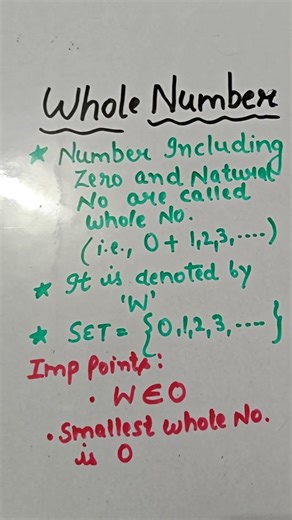 Whole Number
★ Number Including
Zero and Natural
No are called
Whole No.
(i.e., 0 + 1,2,3,....)
★ It is denoted by
'W'
★ SET = {0,1,2,3,....}
Imp Points:
• W ∈ 0
• Smallest whole No.
is 0